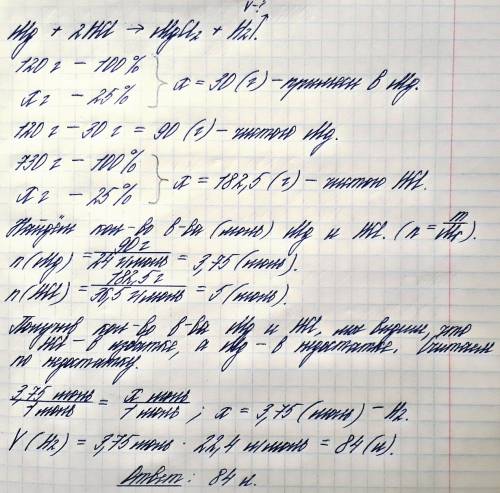 V-?
Mg + 2HCl → MgCl₂ + H₂↑.
120 г – 100%
x г – 25%
x = 30 (г) – примеси в Mg.
120 г – 30 г = 90 (г) – чистого Mg.
730 г – 100%
x г – 25%
x = 182,5 (г) – чистого HCl.
Найдём кол-во в-ва (моль) Mg и HCl. (n = m/Mr).
n(Mg) = 90 г / 24 г/моль = 3,75 (моль).
n(HCl) = 182,5 г / 36,5 г/моль = 5 (моль).
Получив кол-во в-ва Mg и HCl, мы видим, что
HCl – в избытке, а Mg – в недостатке. Считаем
по недостатку.
3,75 моль / 1 моль = x моль / 1 моль ; x = 3,75 (моль) – H₂.
V(H₂) = 3,75 моль · 22,4 л/моль = 84 (л).
Ответ: 84 л.